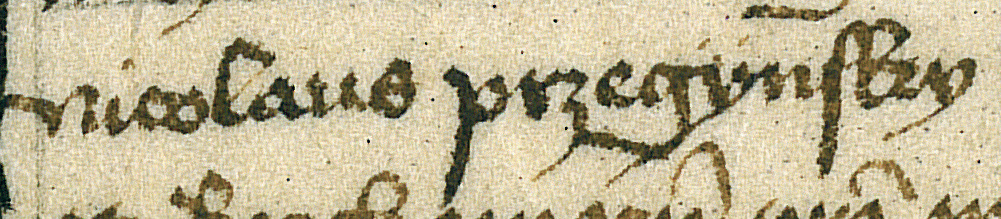 Nicolaus przegynsky